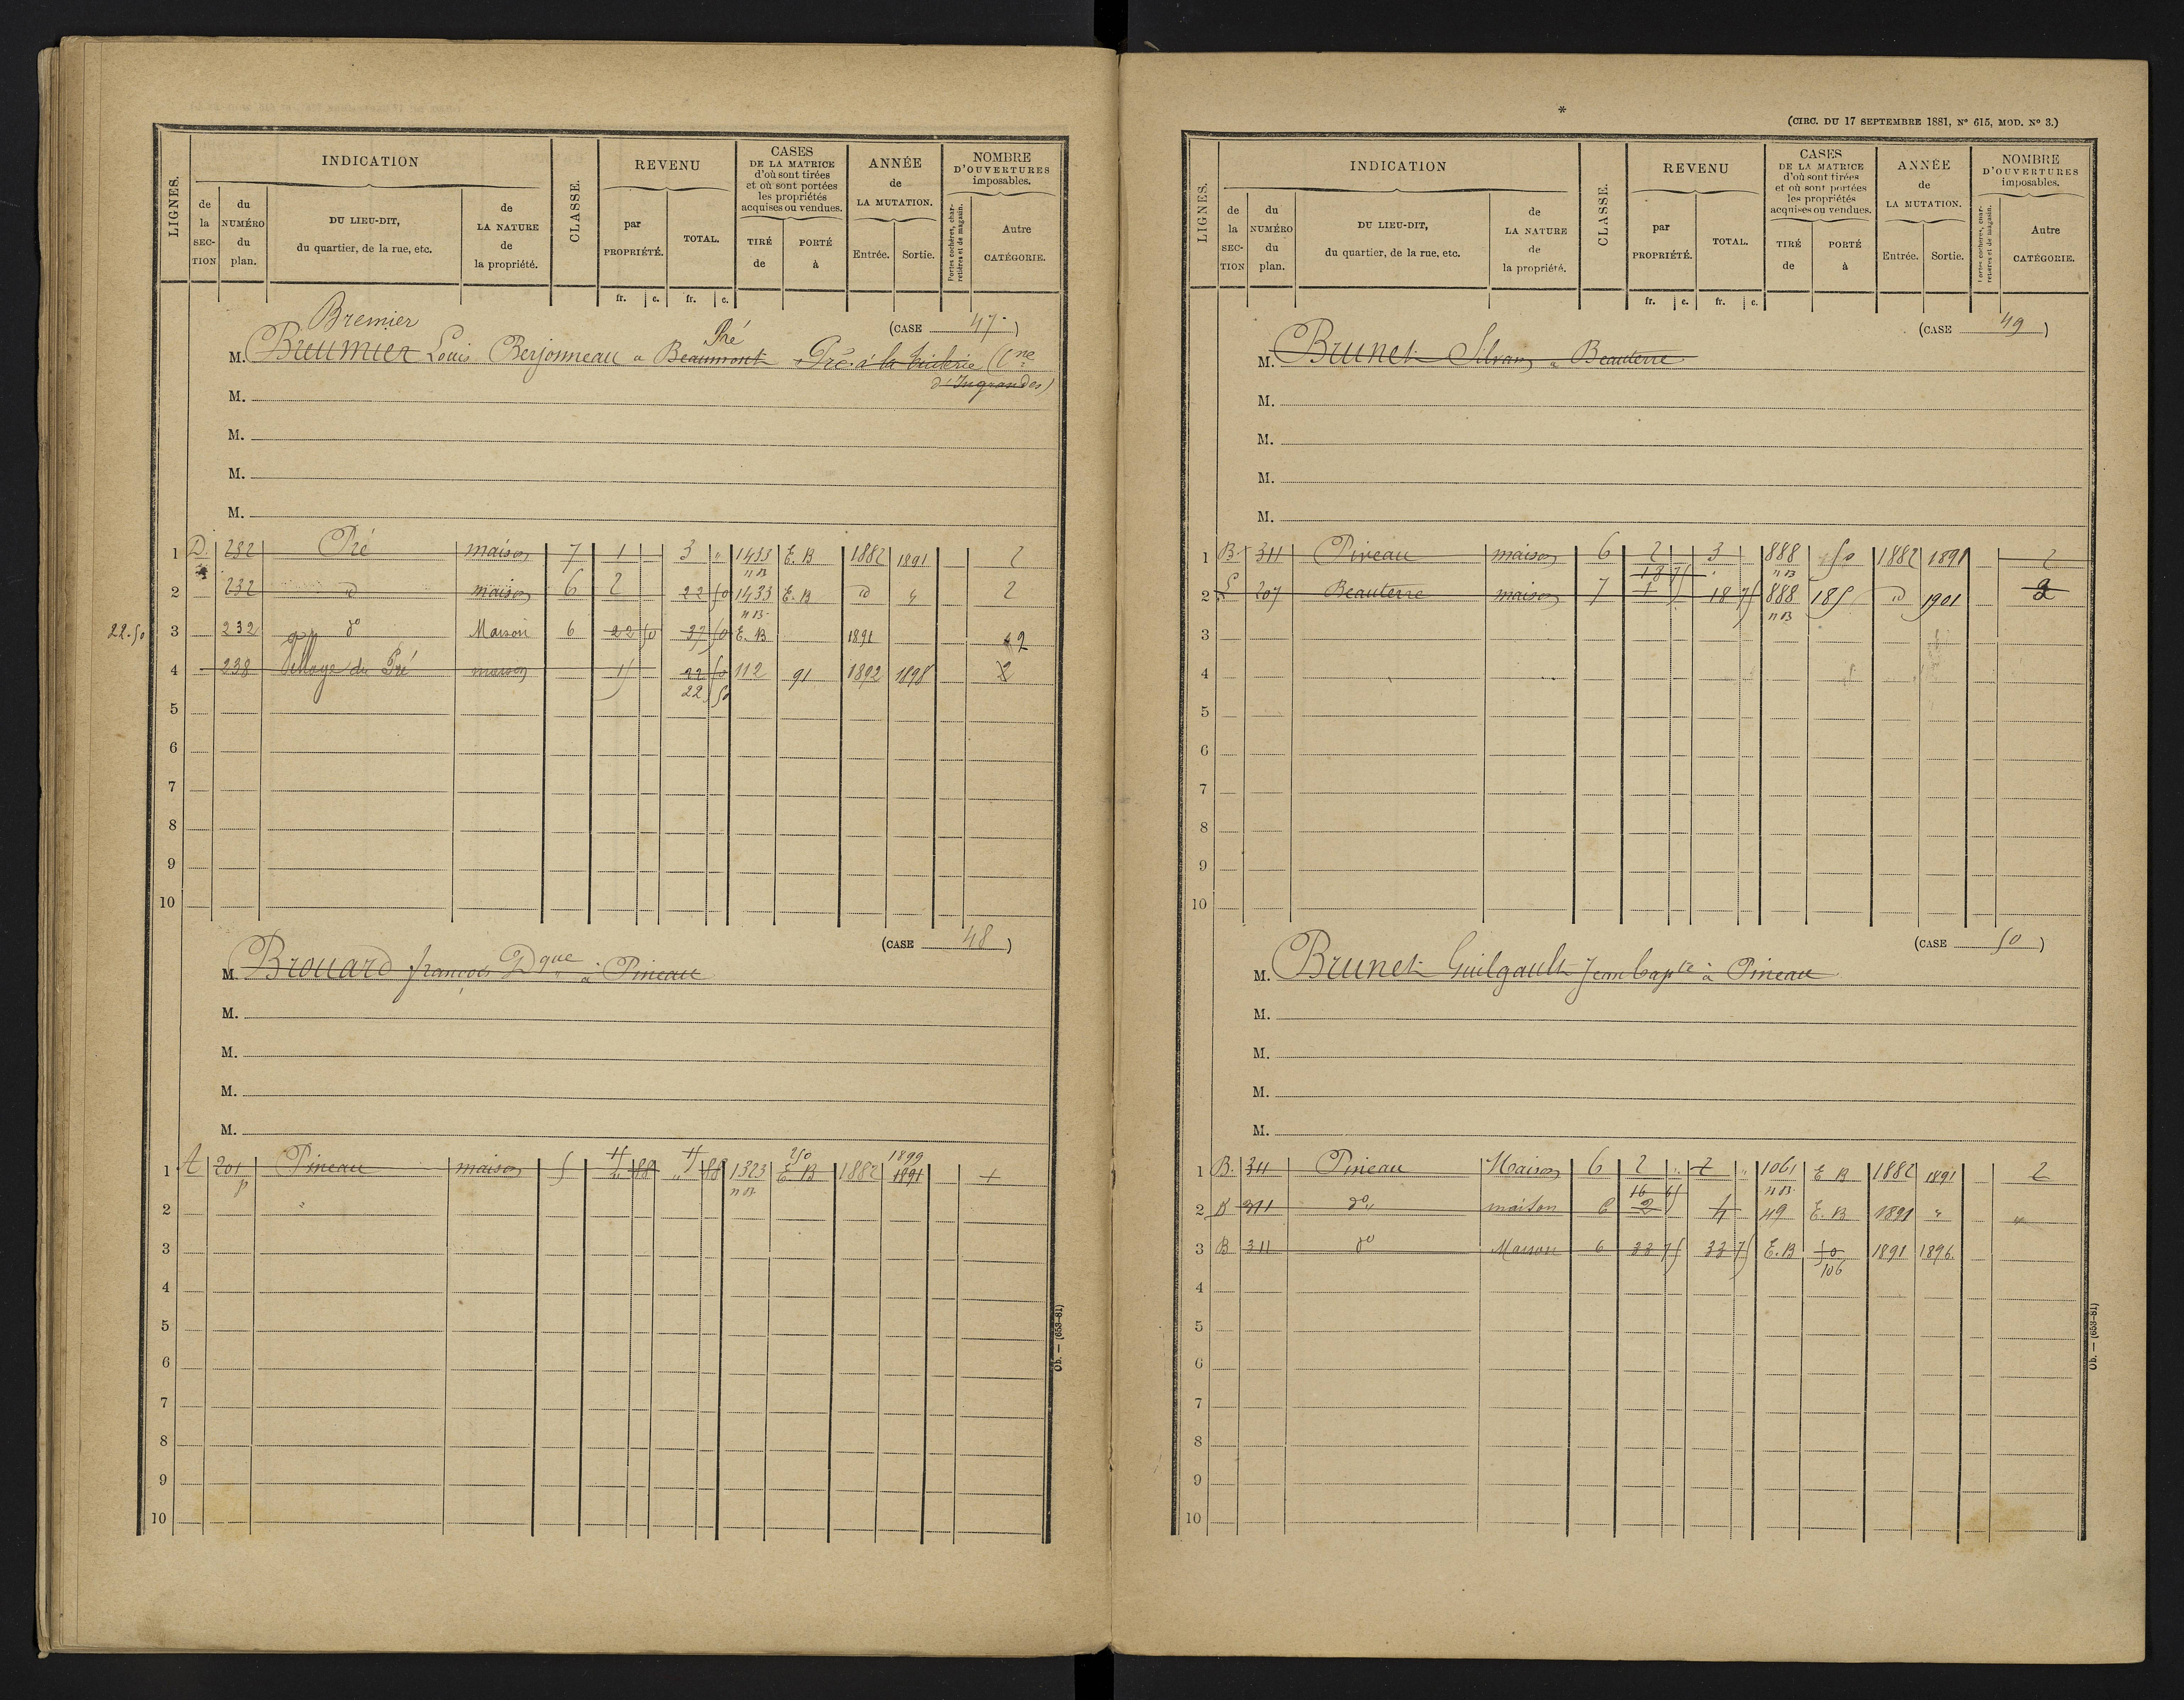 LIGNES.
INDICATION
de la SEC-TION
du NUMÉRO du plan.
DU LIEU-DIT, du quartier, de la rue, etc.
de LA NATURE de la propriété.
CLASSE.
REVENU
par PROPRIÉTÉ.
TOTAL.
fr. c. fr. c.
CASES DE LA MATRICE d'où sont tirées et où sont portées les propriétés acquises ou vendues.
TIRÉ de
PORTÉ à
ANNÉE de LA MUTATION.
Entrée. Sortie.
NOMBRE D'OUVERTURES imposables.
Portes cochères, charretières et de magasin.
Autre CATÉGORIE.
(CASE 47)
Bremier
Pré
M. Breumier Louis Berjonneau a Beaumont Pré à la tuilerie (Cne
d'Ingrandes)
M.
M.
M.
M.
1 D. 232 Pré maison 7 1 3 „ 1433 E.B 1882 1891 2
n B
2 232 d maison 6 2 22 50 1433 E.B d „ 2
n B
22.50 3 232 do Maison 6 22 50 27 50 E.B 1891 2
4 238 Village du Pré maison 1 22 50 112 91 1892 1898 2
22 50
5
6
7
8
9
10
(CASE 48)
M. Brouard françois Dque à Pineau
M.
M.
M.
M.
11 11 250 1899
1 A 201 Pineau maison 5 88 „ 88 1323 E.B 1882 1891 1
p n B
2
3
4
5
6
7
8
9
10
Ob. — (653-81)
*
(CIRC. DU 17 SEPTEMBRE 1881, N° 615, MOD. N° 3.)
LIGNES.
INDICATION
de la SEC-TION
du NUMÉRO du plan.
DU LIEU-DIT, du quartier, de la rue, etc.
de LA NATURE de la propriété.
CLASSE.
REVENU
par PROPRIÉTÉ.
TOTAL.
fr. c. fr. c.
CASES DE LA MATRICE d'où sont tirées et où sont portées les propriétés acquises ou vendues.
TIRÉ de
PORTÉ à
ANNÉE de LA MUTATION.
Entrée. Sortie.
NOMBRE D'OUVERTURES imposables.
Portes cochères, charretières et de magasin.
Autre CATÉGORIE.
(CASE 49)
M. Brunet Silvain a Beauterre
M.
M.
M.
M.
1 B. 311 Pineau maison 6 2 3 888 50 1882 1891 2
18 75 n B
2 207 Beauterre maison 7 1 18 75 888 185 d 1901 2
n B
3
4
5
6
7
8
9
10
(CASE 50)
M. Brunet Guilgault Jean bapte à Pineau
M.
M.
M.
M.
1 B. 311 Pineau Maison 6 2 „ 2 „ 1061 E B 1882 1891 2
16 n B
2 B 311 do „ maison 6 2 4 49 E.B 1891 „ „
3 B 311 do Maison 6 33 75 33 75 E.B 50 1891 1896.
106
4
5
6
7
8
9
10
Ob. — (653-81)